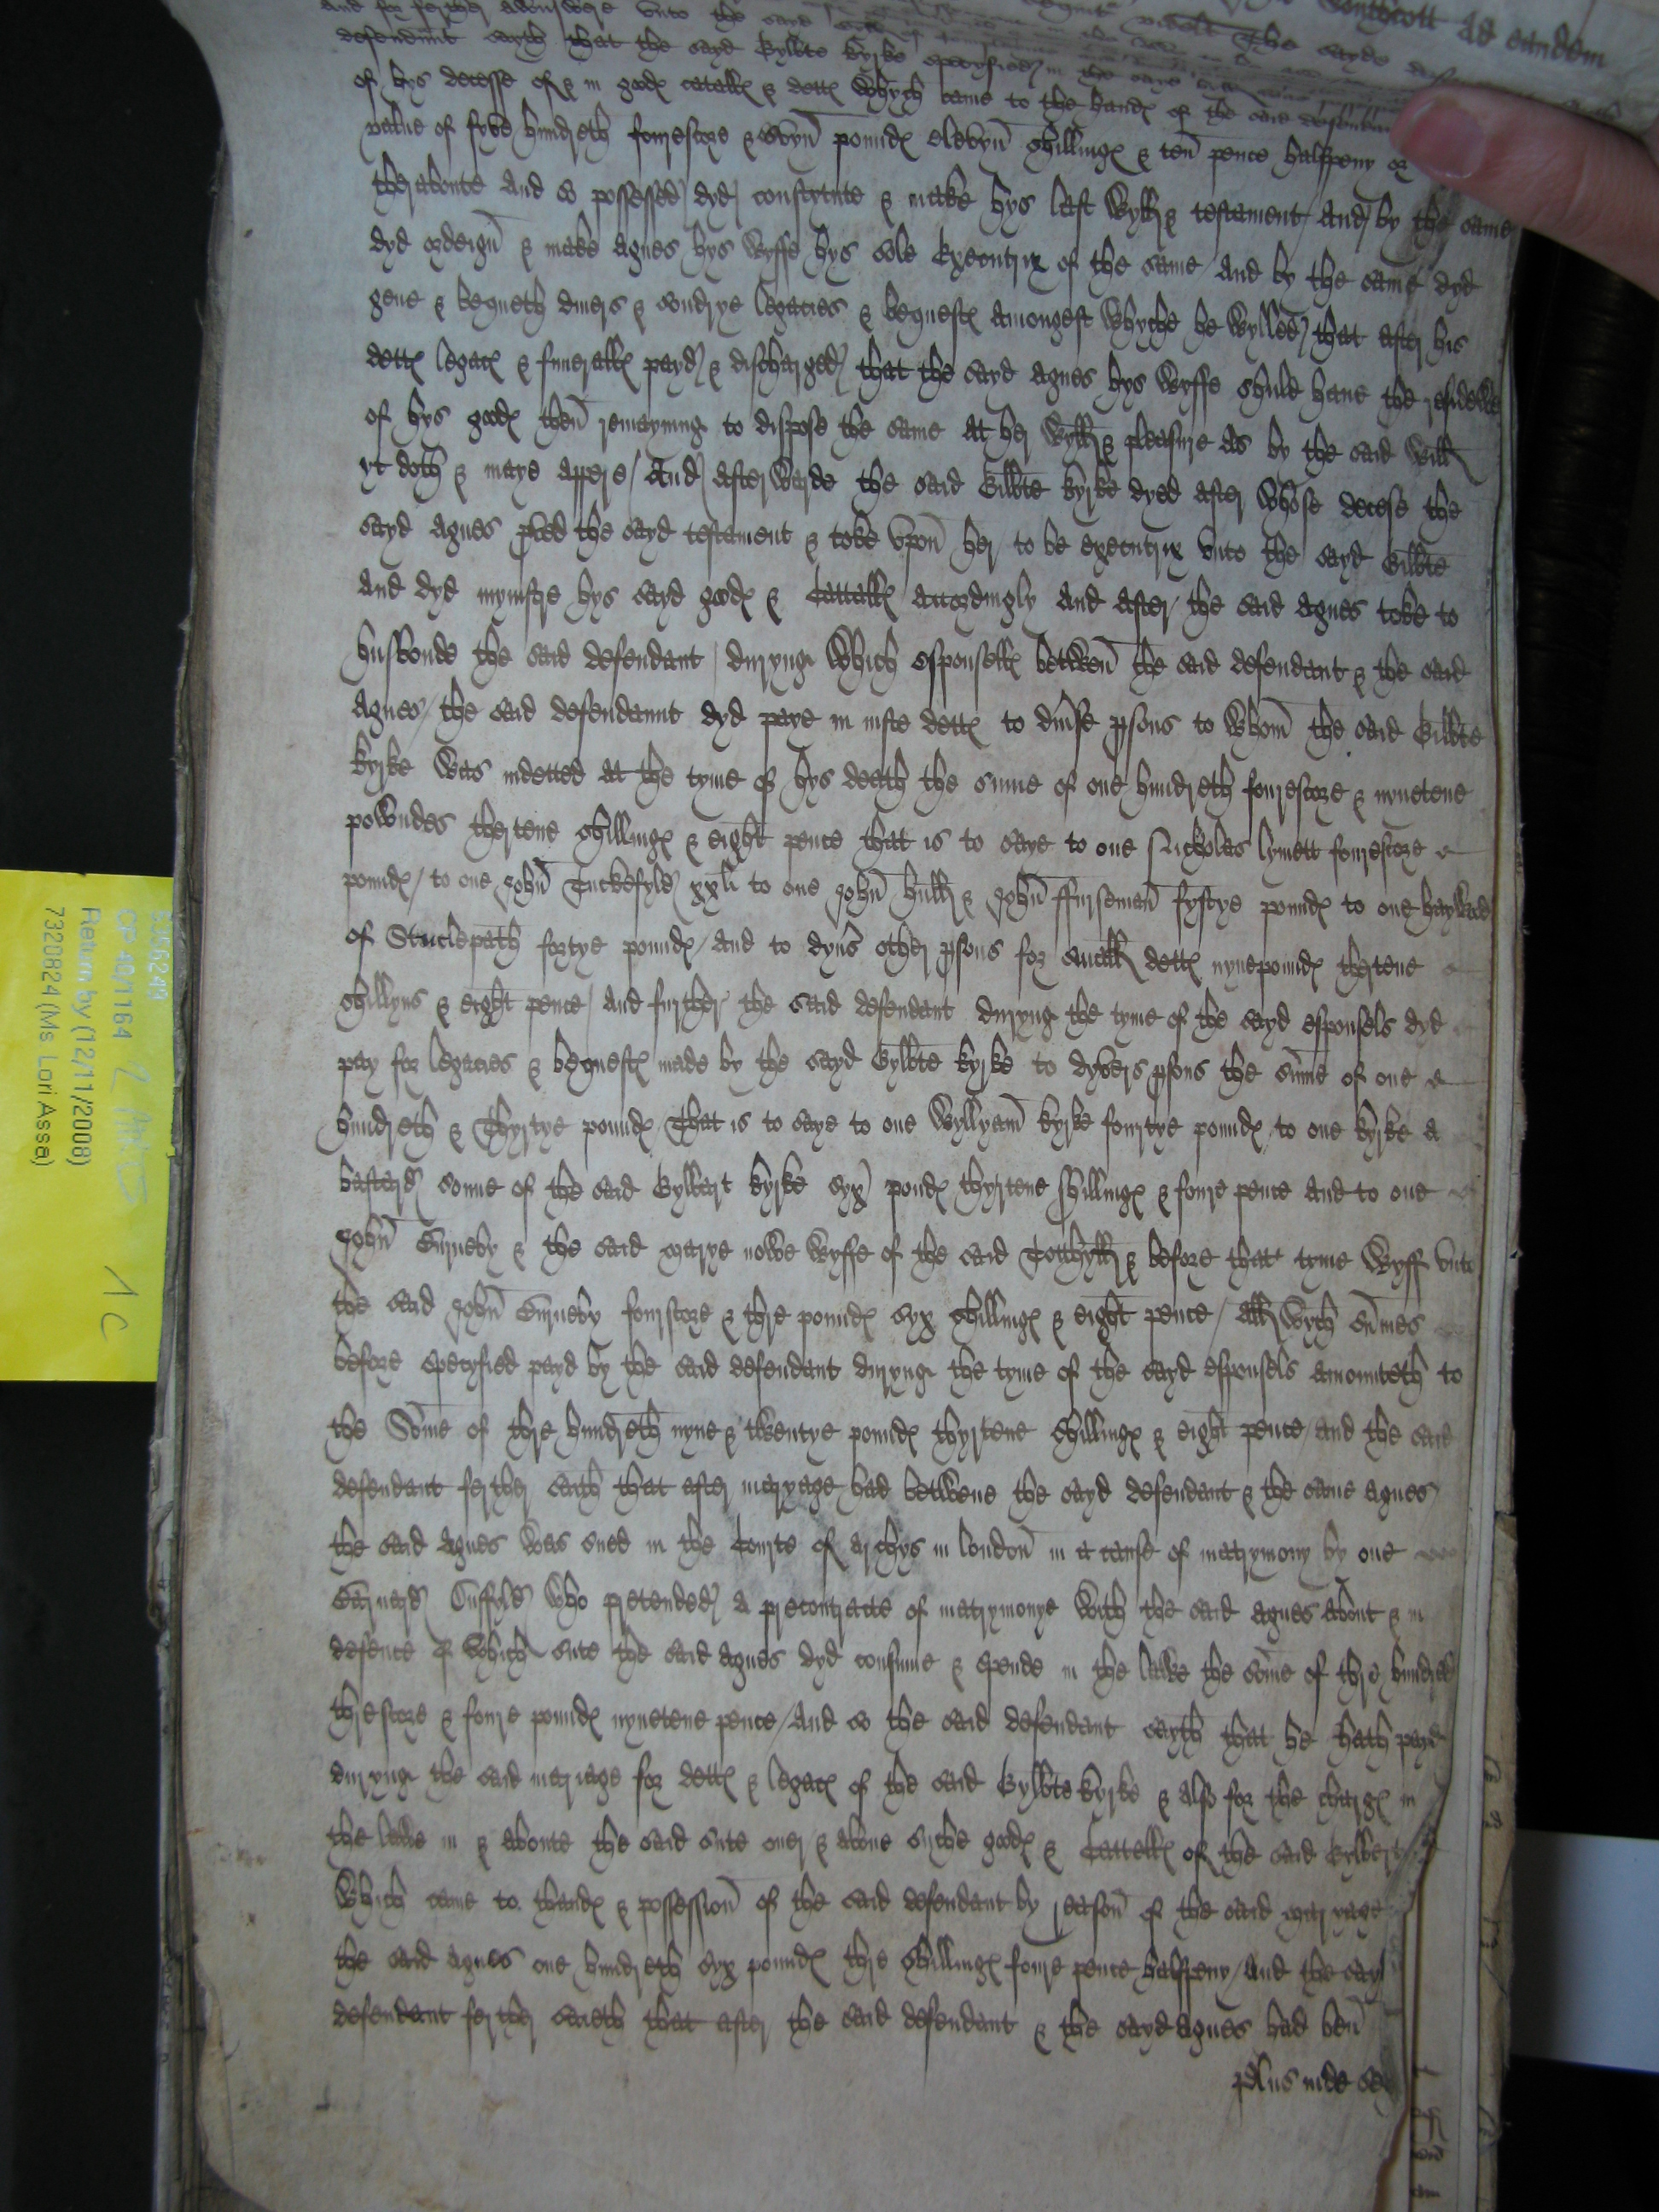 Southcott ad eandem
and for ferther answere unto the sayd
defendunt sayth that the sayd Gylbte Kyrke specyfied in the same
of hys decesse of & in goodes catalles & dettes whych came to the handes of the same defendunt
value of fyve hundreth fourescore & sevyn poundes elevyn shillinges & ten pence halfpeny or
theraboute And so possessed dyd constytute & make hys last wyll & testament And by the same
dyd ordeign & make Agnes hys wyffe hys sole executrix of the same And by the same dyd
geve & bequeth divers & sundrye legacies & bequestes amongest whyche he wylled that after his
dettes legaces & funeralles payd & discharged that the sayd Agnes hys wyffe shuld have the residewe
of hys goodes then remaynyng to dispose the same at her wyll & pleasure as by the said will
yt doth & maye appere And afterwarde the said Gilbte Kyrke dyed after whose decese the
sayd Agnes pved the sayd testament & toke upon her to be executrix unto the sayd Gilbte
and dyd mynistre hys sayd goodes & Cattalles accordingly And after the said Agnes toke to
husbonde the said defendant duryng which esponselles between the said defendant & the said
Agnes the said defendannt dyd paye in iuste dettes to divse psons to whom the said Gilbte
Kyrke was indetted at the tyme of hys death the sume of one hundreth fourescore & nynetene
powndes thertene shillinges & eight pence that is to saye to one Nicholas lymett fourescore
poundes to one John Tuckefyld xxli to one John hull & John ffurseman fyftye poundes to one hayward
of Sticlepath fortye poundes and to dyvs other psons for small dettes nyne poundes thertene
shillyns & eight pence And further the said defendant duryng the tyme of the sayd esponsels dyd
pay for legacies & bequestes made by the sayd Gylbte Kyrke to dyvers psons the sume of one
hundreth & Thyrtye poundes That is to saye to one Wyllyam Kyrke fourtye poundes to one Kyrke a
basterd sonne of the said Gylbert Kyrke syx poundes thyrtene shillinges & foure pence and to one
John Gurneby & the said marye nowe wyffe of the said Tothyll & before that tyme wyff unto
the said John Gurneby fourscore & thre poundes syx shillinges & eight pence all wych sumes
before specyfied payd by the said defendant duryng the tyme of the sayd esponsels amounteth to
the Some of thre hundreth nyne & twentye poundes thyrtene shillinges & eight pence and the said
defendant ferther saith that after maryage had betwene the sayd defendant & the same Agnes
the said Agnes was sued in the Courte of archys in london in a cause of matrymony by one
who pretended a precontracte of matrymonye with the said Agnes about & in
defence of which sute the said Agnes dyd consume & spende in the lawe the some of thre hundred
threscore & foure poundes nynetene pence And so the said defendant sayth that he hath payd
duryng the said mariage for dettes & legaces of the said Gylbte Kyrke & also for the charges in
the lawe in & aboute the said sute over & above suche goodes & Cattelles of the said Gylbert
which came to thandes & possession of the said defendant by reason of the said maryage
the said Agnes one hundreth syx poundes thre shillinges foure pence halfpeny And the sayd
defendant ferther saieth that after the said defendant & the sayd Agnes had ben
plus inde
5356249
CP 40/1164
Return by (12/11/2008)
7320824 (Ms. Lori Asse)
1 C